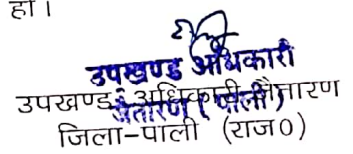 हो।
उपखण्ड अधिकारी
जैतारण (पाली)
उपखण्ड अधिकारी जैतारण
जिला-पाली (राज0)